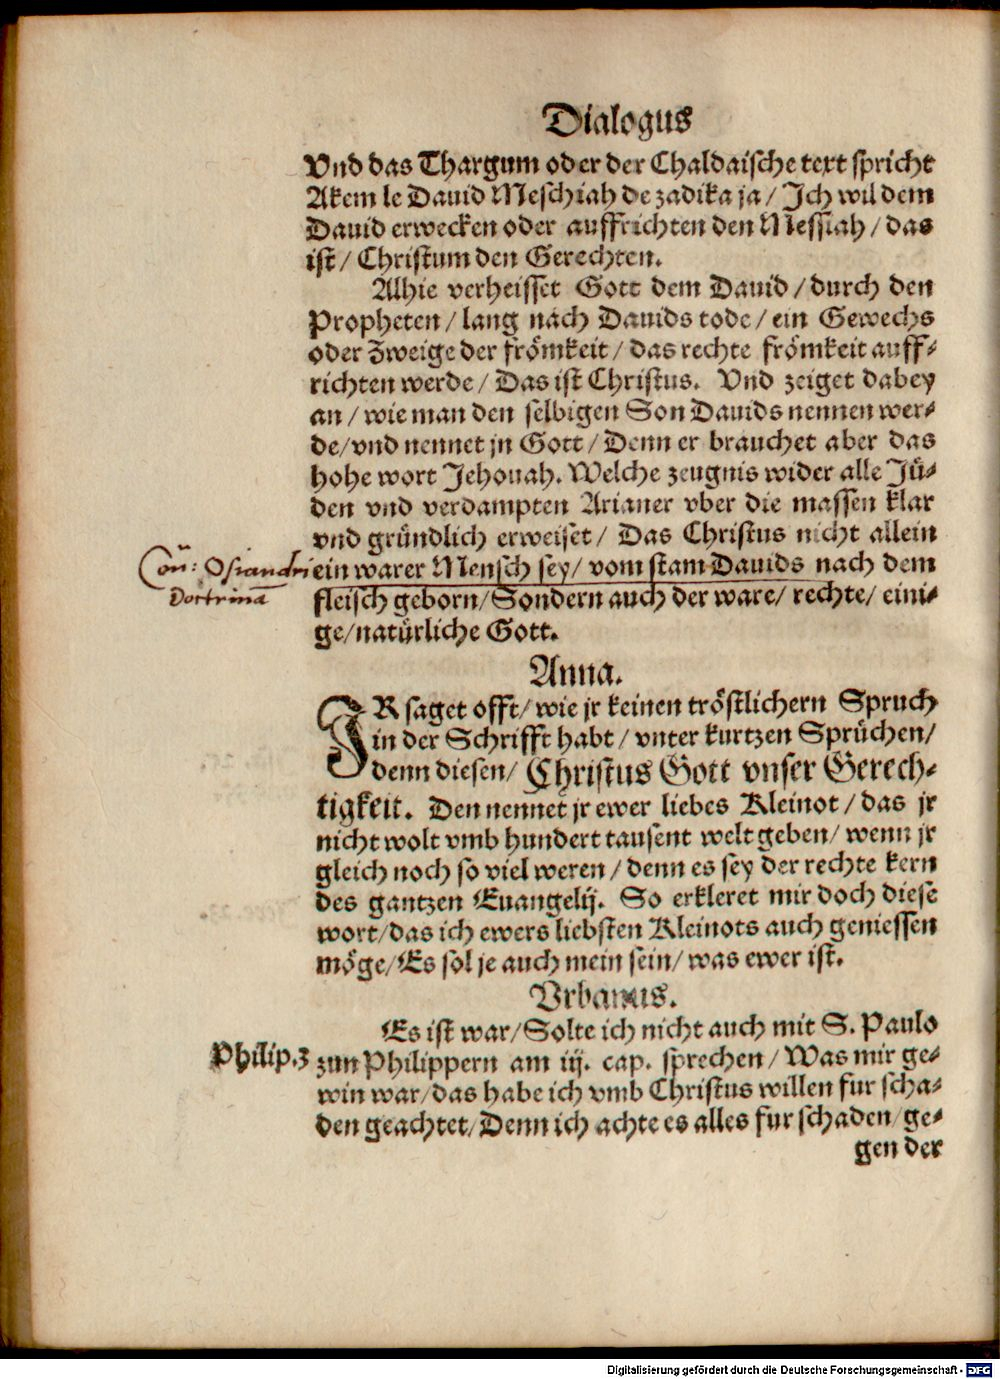 Dialogus
Vnd das Thargum oder der Chaldaische text spricht
Akem le Dauid Meschiah de zadika ja / Ich wil dem
Dauid erwecken oder auffrichten den Messiah / das
ist / Christum den Gerechten.
Alhie verheisset Gott dem Dauid / durch den
Propheten / lang nach Dauids tode / ein Gewechs
oder Zweige der frömkeit / das rechte frömkeit auff⸗
richten werde / Das ist Christus. Vnd zeiget dabey
an / wie man den selbigen Son Dauids nennen wer⸗
de / vnd nennet jn Gott / Denn er brauchet aber das
hohe wort Jehouah. Welche zeugnis wider alle Jü⸗
den vnd verdampten Arianer vber die massen klar
vnd gründlich erweiset / Das Christus nicht allein
ein warer Mensch sey / vom stam Dauids nach dem
Osiandri
Doctrinā
fleisch geborn / Sondern auch der ware / rechte / eini⸗
ge / natürliche Gott.
Anna.
IR saget offt / wie jr keinen tröstlichern Spruch
in der Schrifft habt / vnter kurtzen Sprüchen /
denn diesen / Christus Gott vnser Gerech⸗
tigkeit. Den nennet jr ewer liebes Kleinot / das jr
nicht wolt vmb hundert tausent welt geben / wenn jr
gleich noch so viel weren / denn es sey der rechte kern
des gantzen Euangelij. So erkleret mir doch diese
wort / das ich ewers liebsten Kleinots auch geniessen
möge / Es sol je auch mein sein / was ewer ist.
Vrbanus.
Es ist war / Solte ich nicht auch mit S. Paulo
Philip. 3
zun Philippern am iij. cap. sprechen / Was mir ge⸗
win war / das habe ich vmb Christus willen fur scha⸗
den geachtet / Denn ich achte es alles fur schaden / ge⸗
gen der
Digitalisierung gefördert durch die Deutsche Forschungsgemeinschaft - DFG